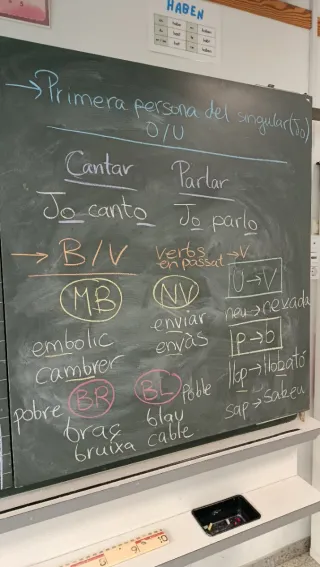 HABEN
→Primera persona del singular(Jo)
O/U
Cantar Parlar
Jo canto Jo parlo
→ B/V verbs en passat →V
MB NV U→V
embolic enviar neu→nevada
cambrer envàs P→b
llop→llobató
pobre BR BL poble sap→sabeu
braç blau
bruixa cable